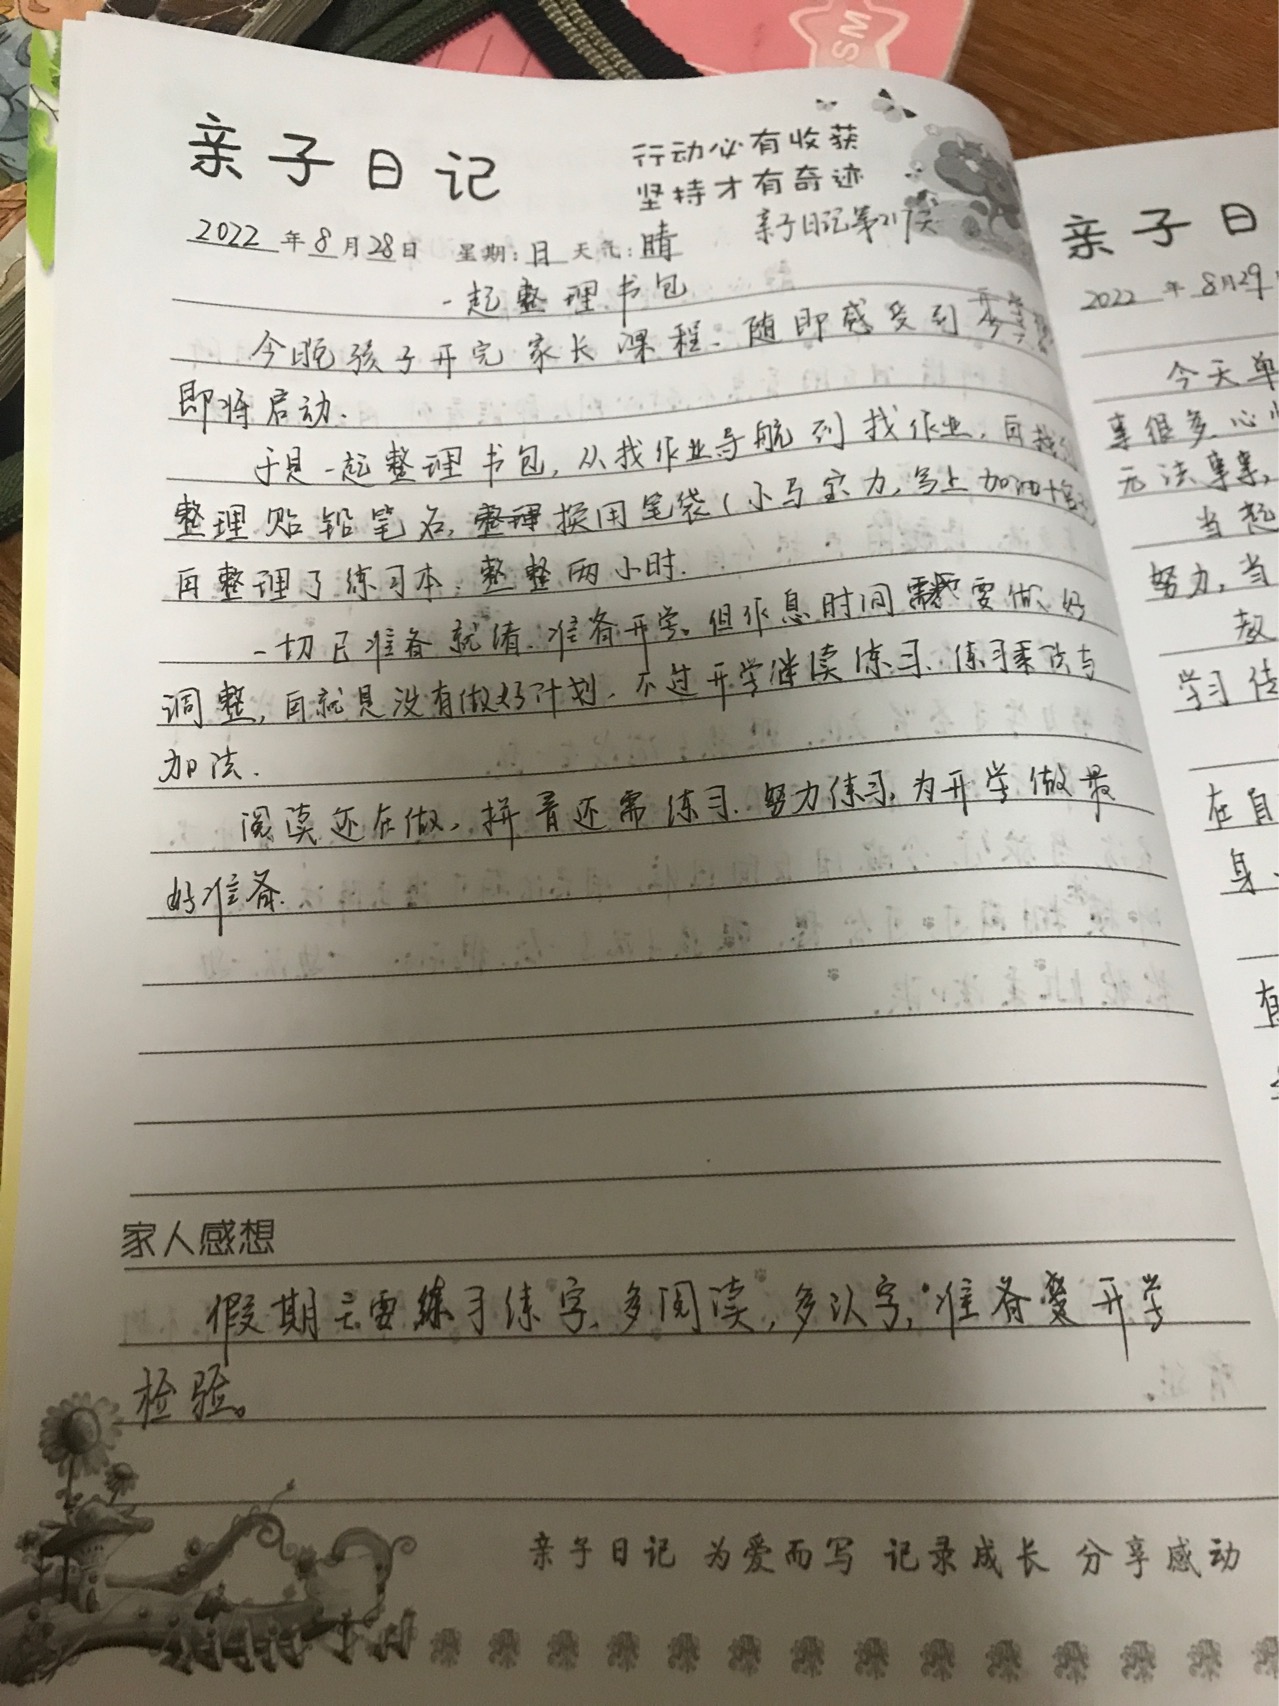 SM
亲子日记
行动必有收获
坚持才有奇迹
亲子日记第217天
2022年8月28日 星期:日 天气:晴
一起整理书包
今晚孩子开完家长课程、随即感受到开学
即将启动.
于是一起整理书包,从找作业导航到找作业,再
整理贴铅笔名,整理换用笔袋(小马宝力,写上加油
再整理了练习本;整整两小时.
一切已准备就绪.准备开学。但作息时间需要做好
调整,自就是没有做好计划.不过开学继续练习.练习乘法与
加法.
阅读还在做,拼音还需练习.努力练习,为开学做最
好准备.
家人感想
假期主要练习练字、多阅读,多认字,准备变开学
检验。
亲子日记 为爱而写 记录成长 分享感动
亲子日
2022年8月29
今天单
事很多心
无法事事,
当起
努力,当
教
学习佳
在自
身、
有